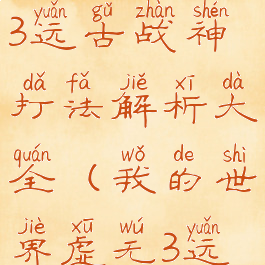 yuǎn gǔ zhàn shén
3远古战神
dǎ fǎ jiě xī dà
打法解析大
quán wǒ de shì
全（我的世
jiè xū wú yuǎn
界虚无3远